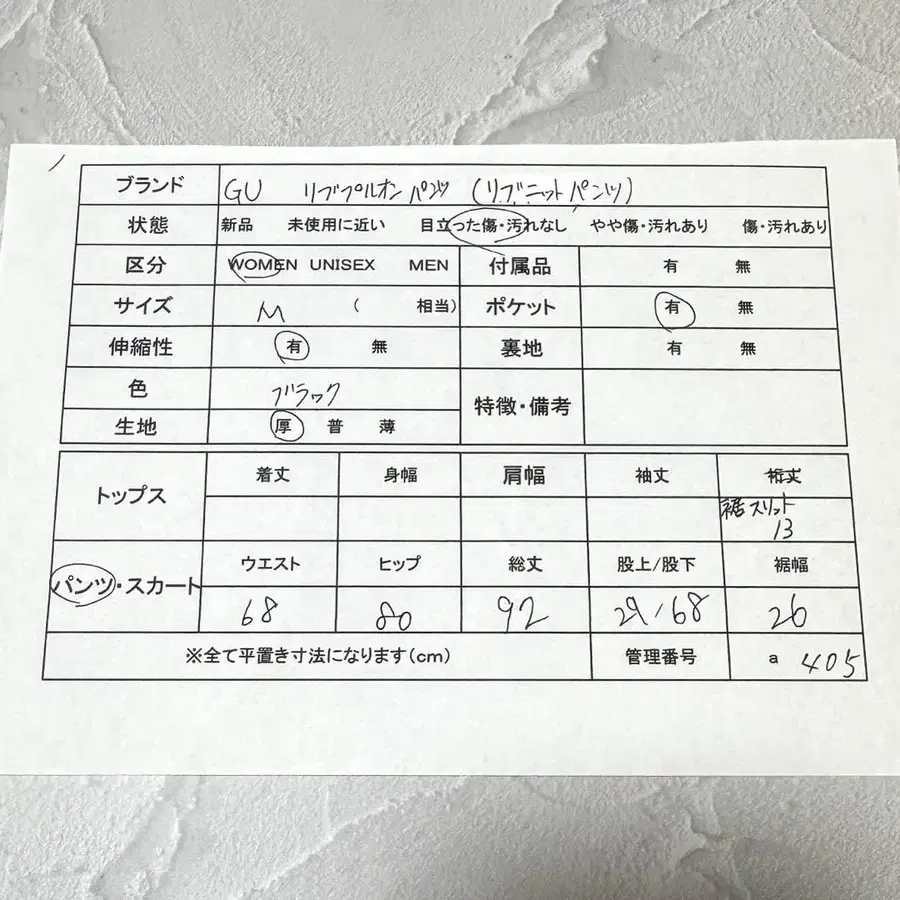 ブランド GU リブプルオンパンツ (リブニットパンツ)
状態 新品 未使用に近い 目立った傷・汚れなし やや傷・汚れあり 傷・汚れあり
区分 WOMEN UNISEX MEN 付属品 有 無
サイズ M ( 相当) ポケット 有 無
伸縮性 有 無 裏地 有 無
色 ブラック 特徴・備考
生地 厚 普 薄
トップス 着丈 身幅 肩幅 袖丈 裄丈
裾スリット
13
パンツ・スカート ウエスト ヒップ 総丈 股上/股下 裾幅
68 80 92 29/68 26
※全て平置き寸法になります(cm) 管理番号 a 405